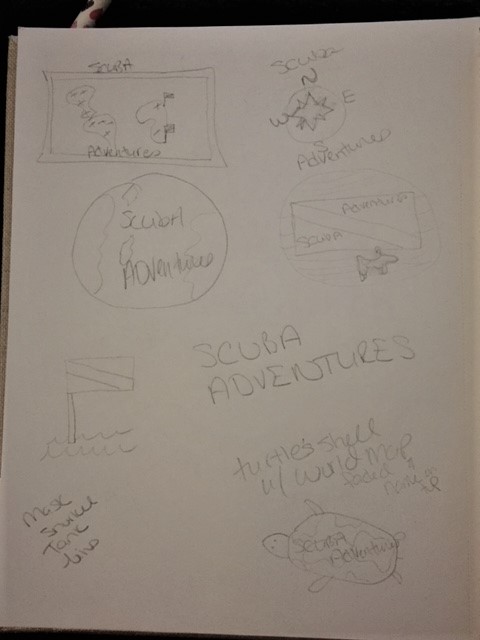 SCUBA
Adventures
SCUBA
N
W
E
S
Adventures
SCUBA
Adventures
Adventures
SCUBA
SCUBA
ADVENTURES
turtle's shell
w/ world map
faded
name in
Mask
Snorkel
Tank
fins
SCUBA
Adventures